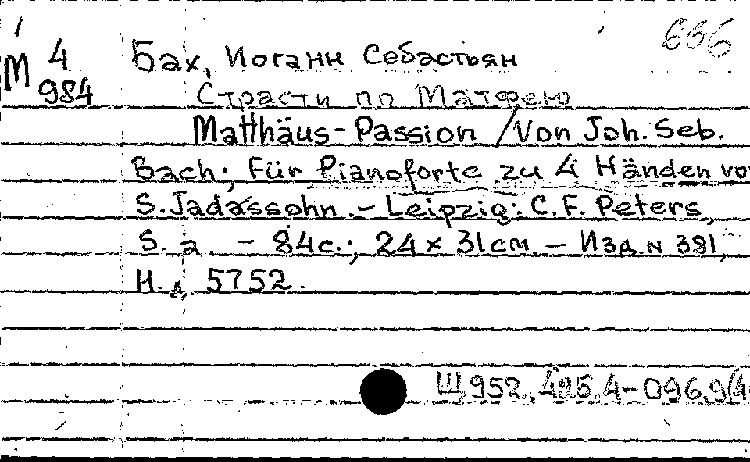 М 4 984
636
Бах, Иоганн Себастьян
Страсти по Матфею
Matthäus-Passion / Von Joh. Seb.
Bach; Für Pianoforte zu 4 Händen vo
S. Jadassohn. - Leipzig: C. F. Peters,
S. a. - 84с.; 24 x 31см. - Изд. N 391,
Н. д. 5752.
Щ952.495.4-096.9(4